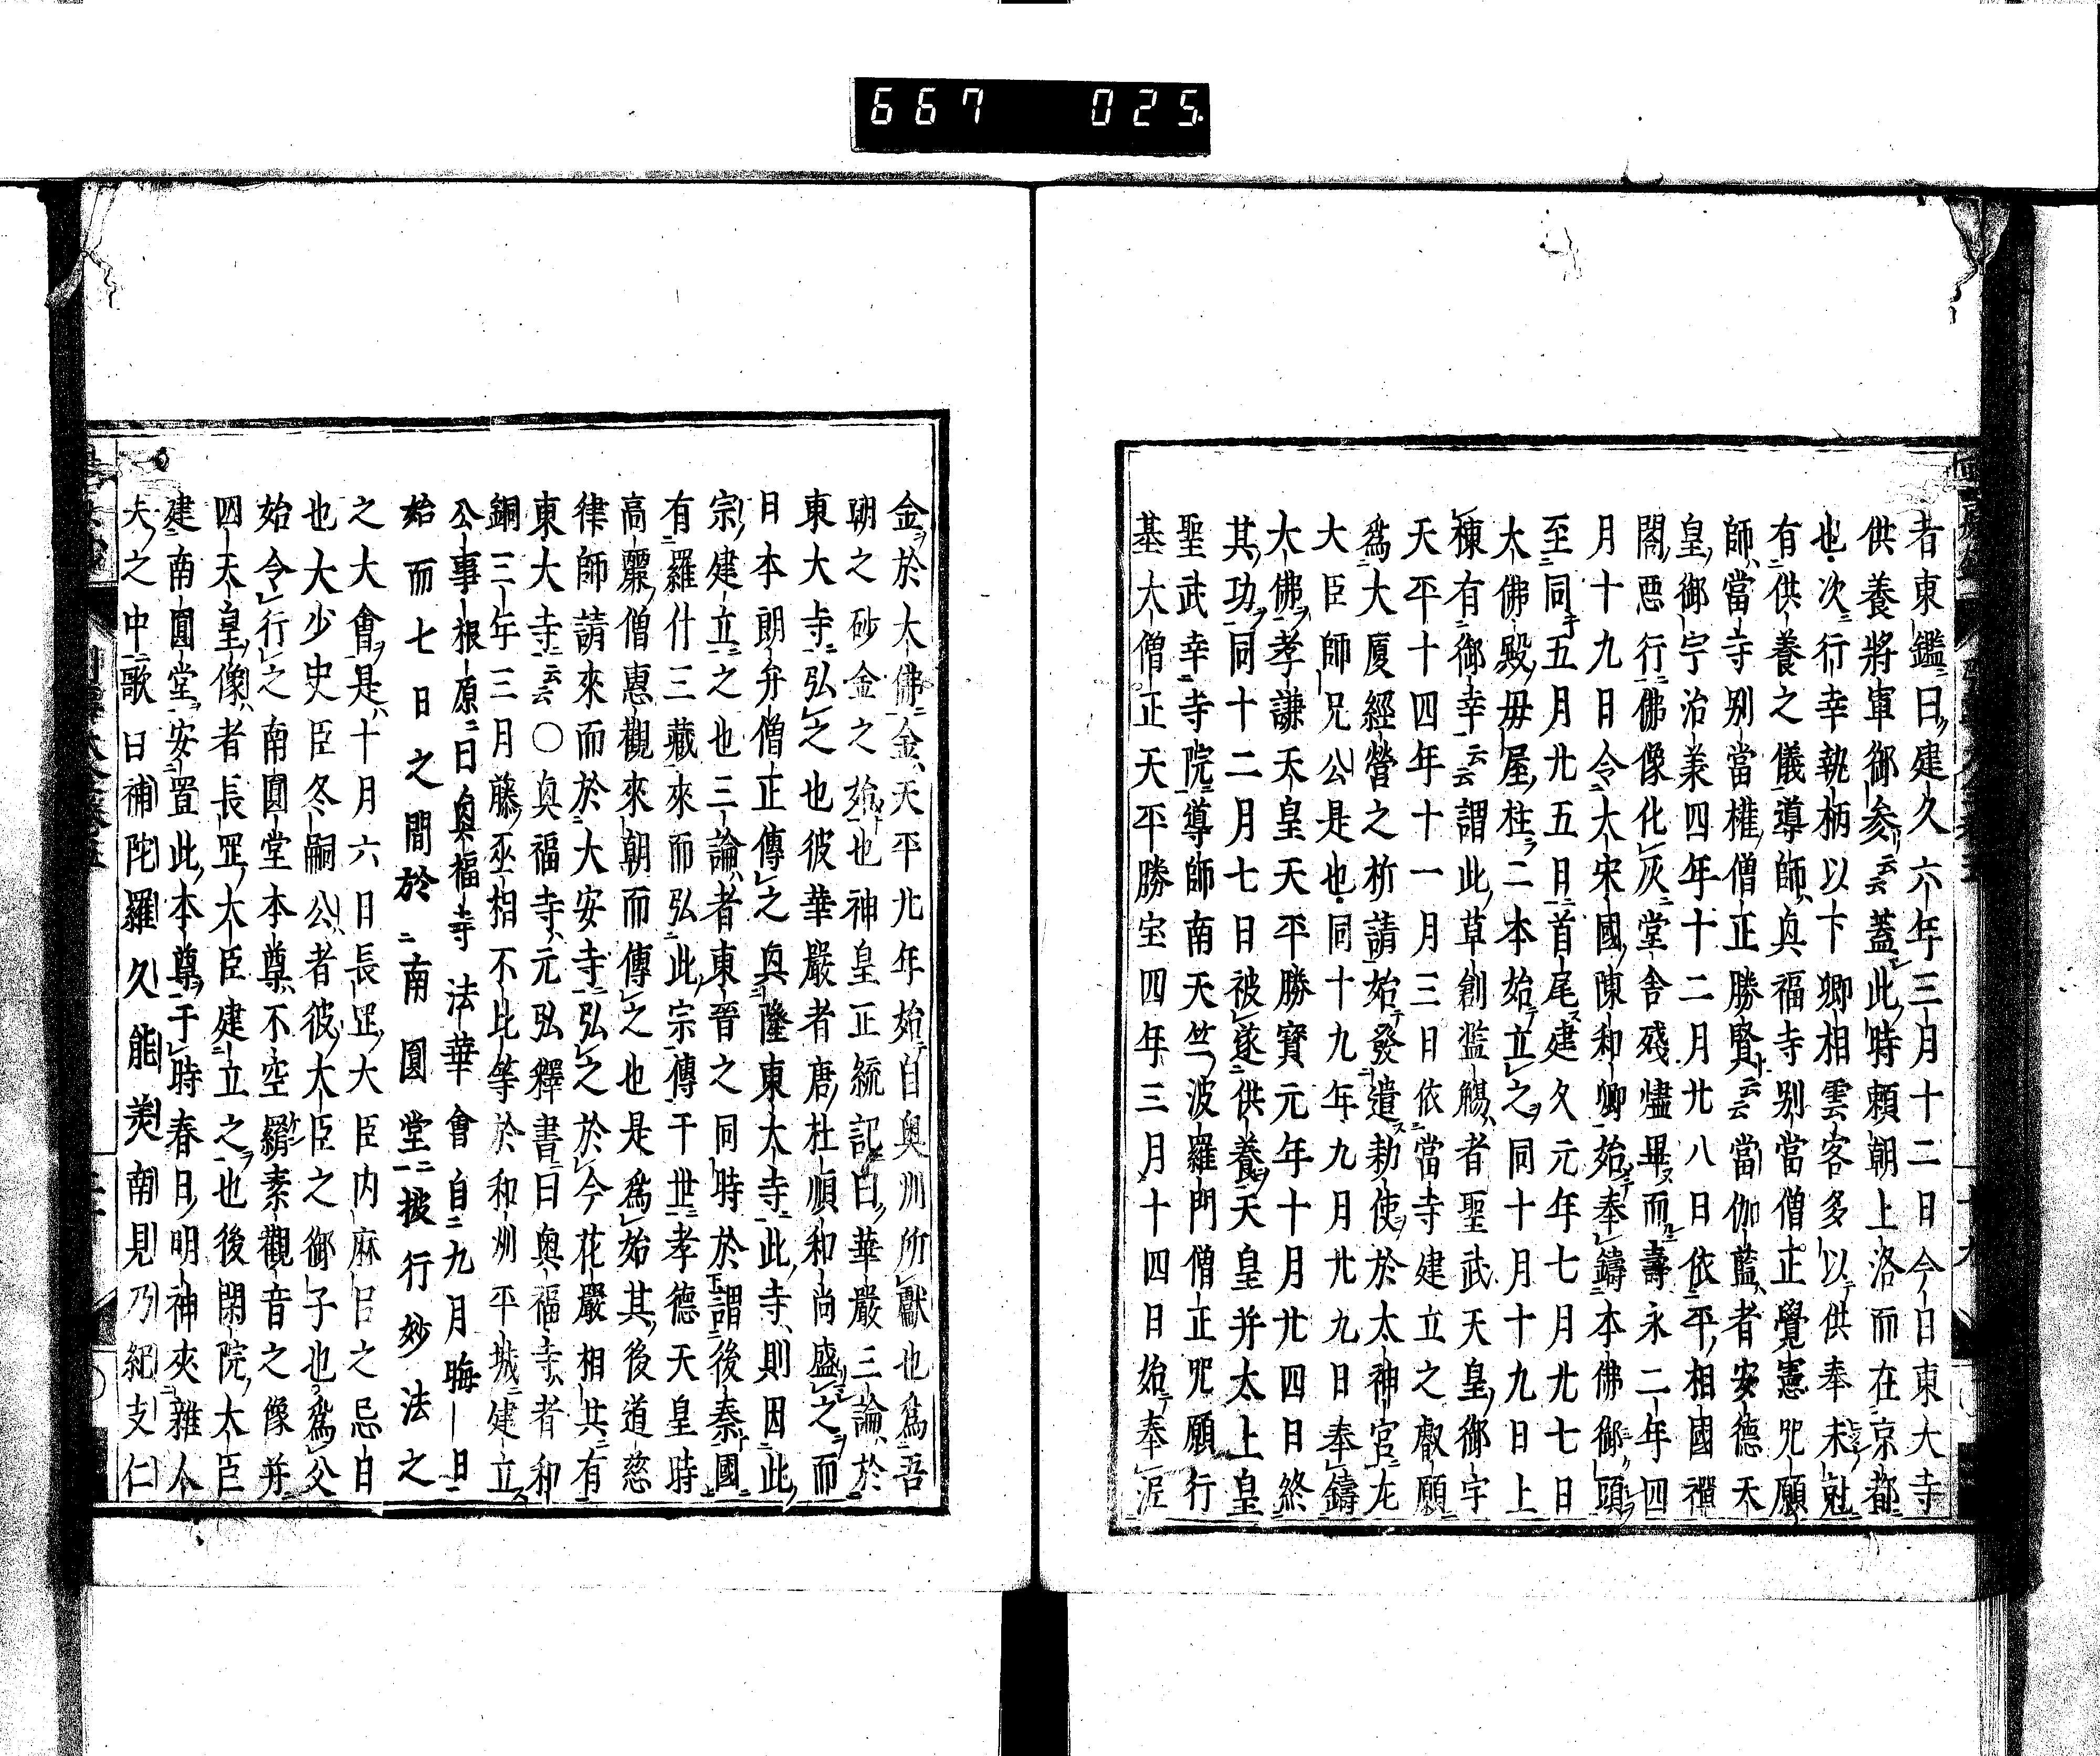 667 025
者東鑑曰建久六年三月十二日今日東大寺
供養將軍御参云云蓋此時頼朝上洛而在京都
也次行幸執柄以下卿相雲客多以供奉未尅
有供養之儀導師真福寺別當僧正覺憲咒願
師當寺別當權僧正勝賢云云當伽藍者安德天
皇御宇治承四年十二月廿八日依平相國禪
閤悪行佛像化灰堂舎殘燼畢而壽永二年四
月十九日令大宋國陳和卿始奉鑄本佛御頭
至同五月廿五日首尾建久元年七月廿七日
大佛殿毋屋柱二本始立之同十月十九日上
棟有御幸云云謂此草創監觴者聖武天皇御宇
天平十四年十一月三日依當寺建立之叡願
爲大厦經營之析請始發遣勅使於太神宮左
大臣師兄公是也同十九年九月廿九日奉鑄
大佛孝謙天皇天平勝寳元年十月廿四日終
其功同十二月七日被遂供養天皇并太上皇
聖武幸寺院導師南天竺波羅門僧正咒願行
基大僧正天平勝宝四年三月十四日始奉泥
金於大佛金天平廾年始自奥州所獻也爲吾
朝之砂金之始也神皇正統記曰華嚴三論於
東大寺弘之也彼華嚴者唐杜順和尚盛之而
日本朗弁僧正傳之興隆東大寺此寺則因此
宗建立之也三論者東晉之同時於謂後秦國
有羅什三藏來而弘此宗傳于世孝德天皇時
高麗僧惠觀來朝而傳之也是爲始其後道慈
律師請來而於大安寺弘之於今花嚴相共有
東大寺云云○奥福寺元弘釋書曰奥福寺者和
銅三年三月藤丞相不比等於和州平城建立
公事根原曰奥福寺法華會自九月晦日
始而七日之間於南圓堂被行妙法之
之大會是十月六日長罡大臣内麻呂之忌日
也大少史臣冬嗣公者彼大臣之御子也爲父
始令行之南圓堂本尊不空羂索觀音之像并
四天皇像者長罡大臣建立之也後閑院大臣
建南圓堂安置此本尊于時春日明神夾雜人
夫之中歌曰補陀羅久能美南見乃紀支仁